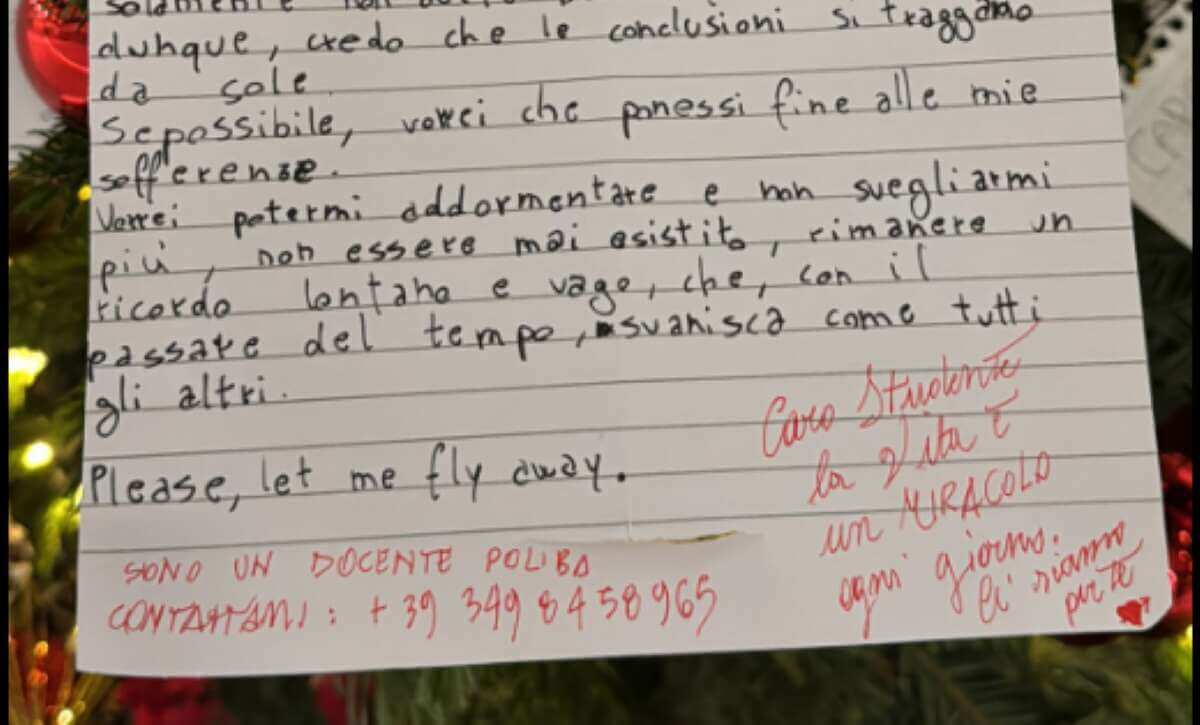 dunque, credo che le conclusioni si traggano
da sole.
Se possibile, vorrei che ponessi fine alle mie
sofferenze.
Vorrei potermi addormentare e non svegliarmi
più, non essere mai esistito, rimanere un
ricordo lontano e vago, che, con il
passare del tempo, svanisca come tutti
gli altri.
Please, let me fly away.
SONO UN DOCENTE POLIBA
CONTATTAMI: +39 349 8458965
Caro Studente
la Vita è
un MIRACOLO
ogni giorno.
Ci siamo
per te